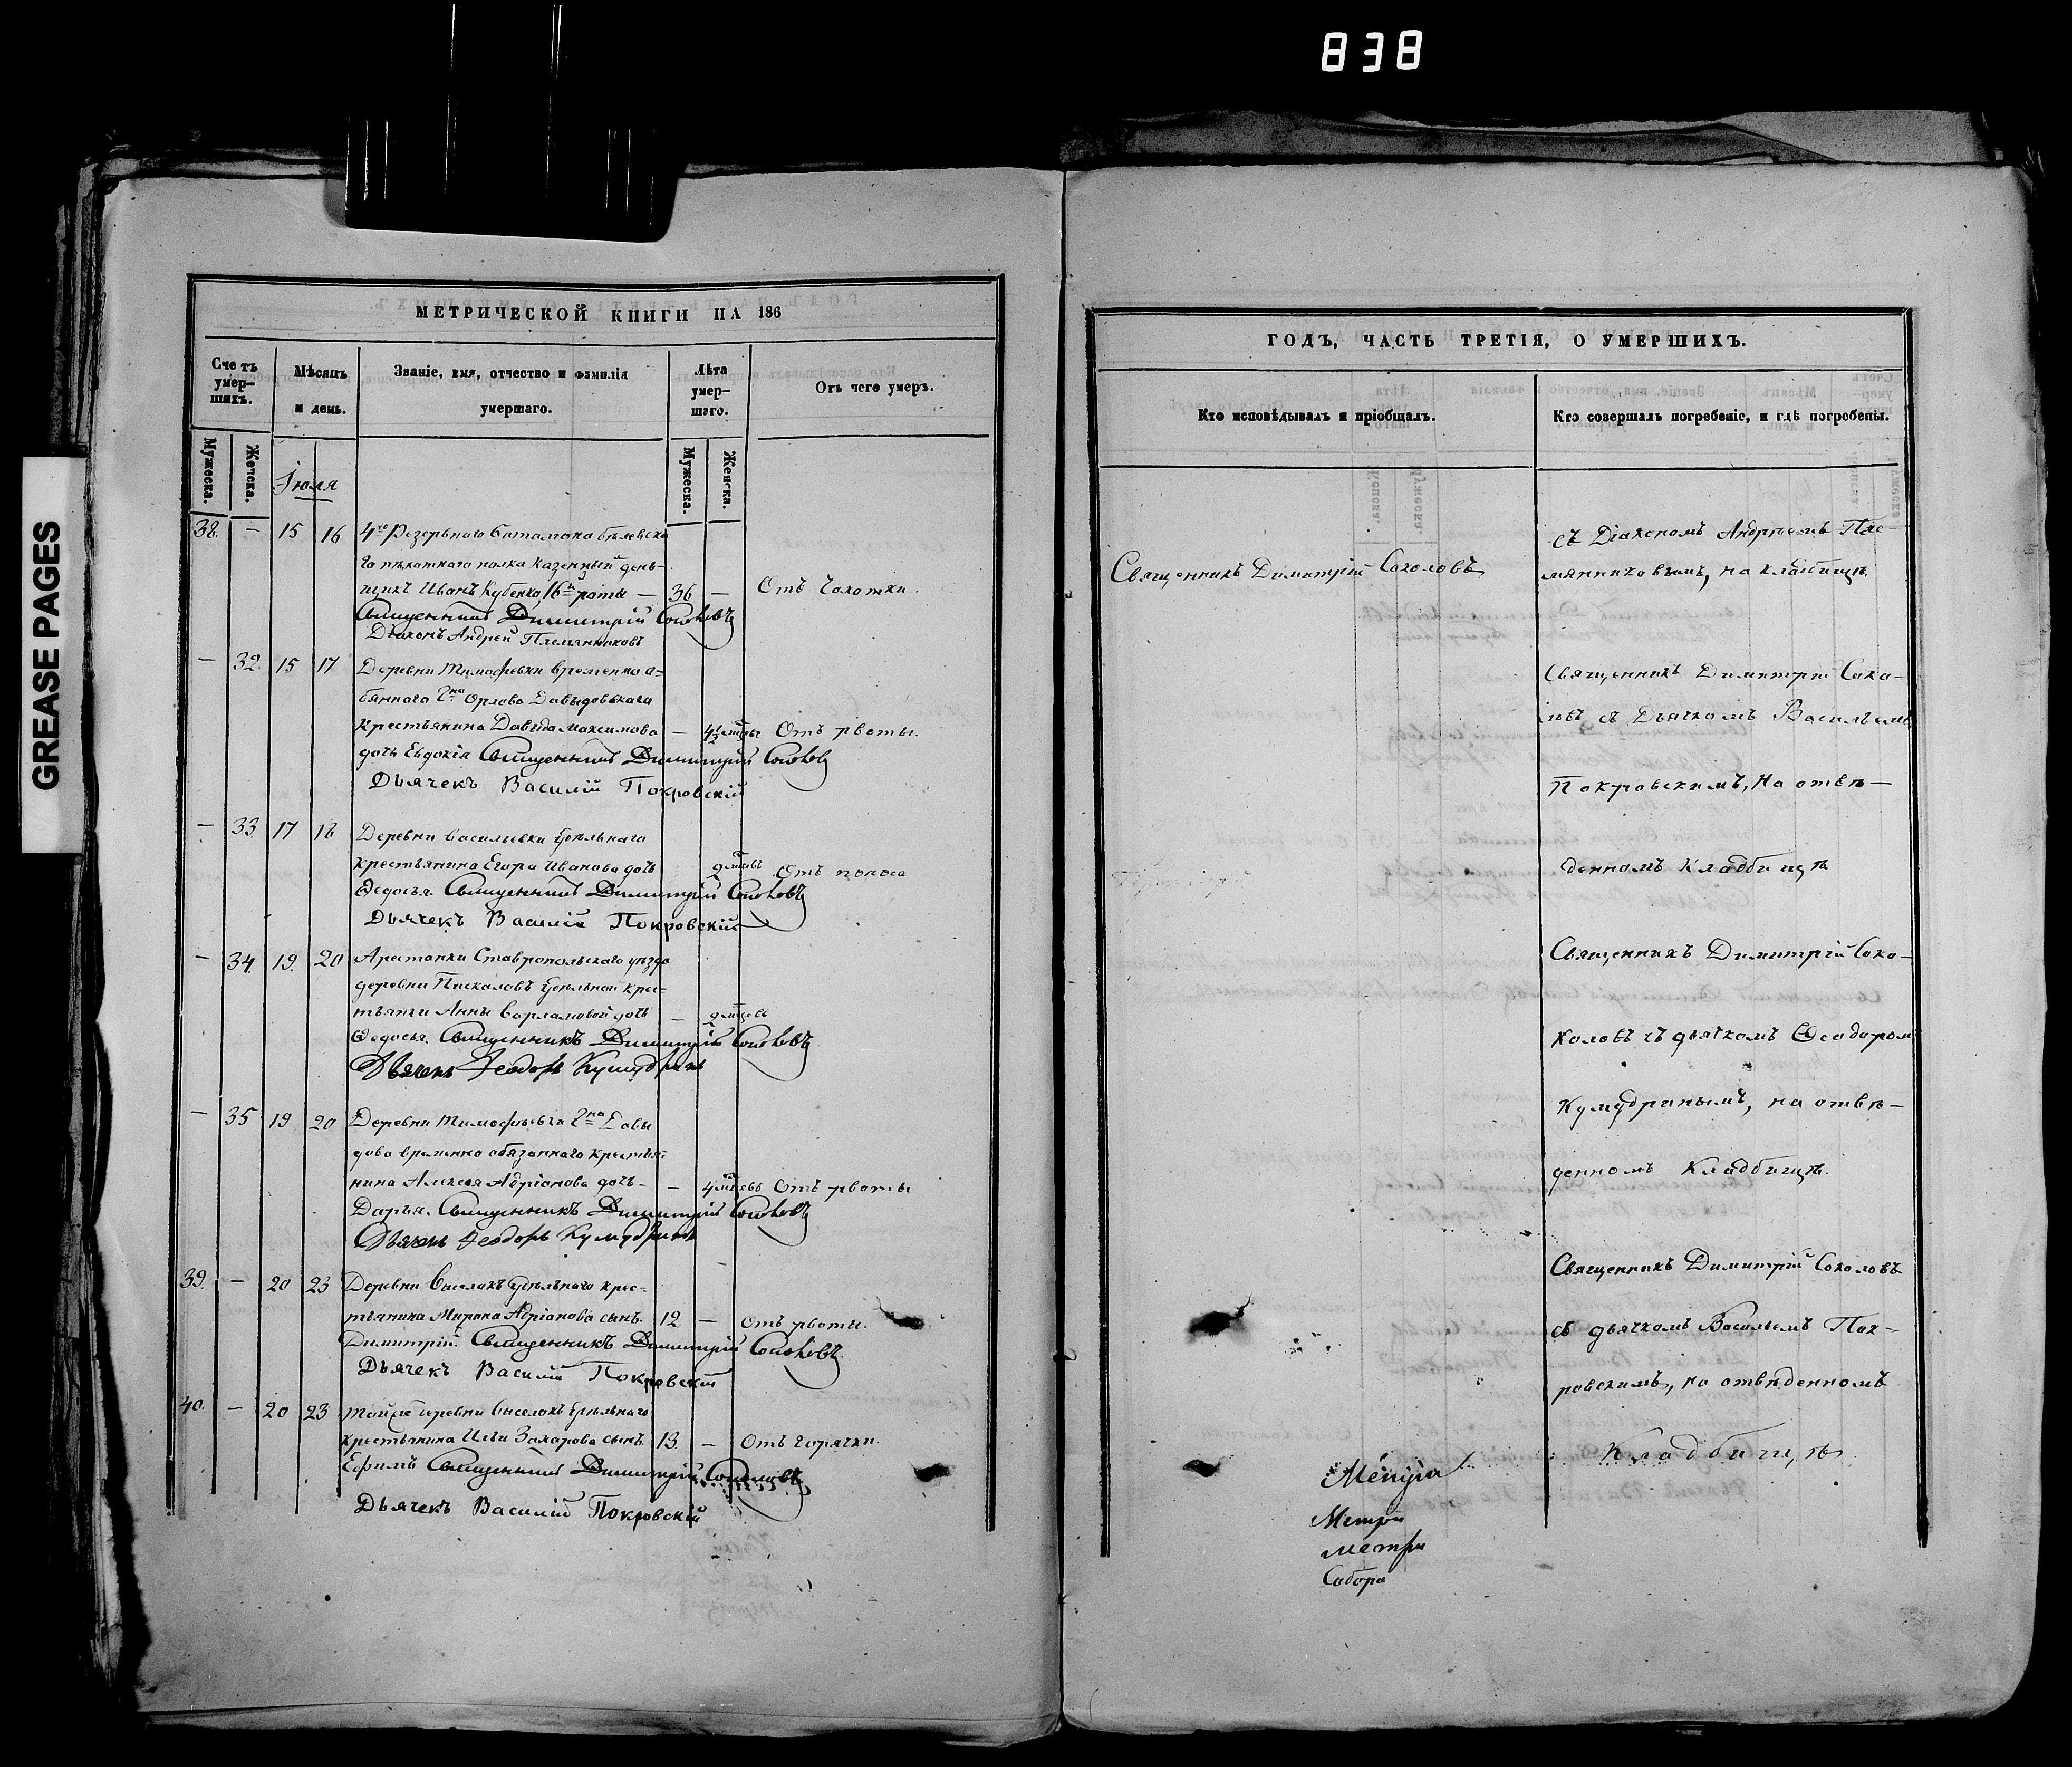 838
GREASE PAGES
МЕТРИЧЕСКОЙ КНИГИ НА 186
Счетъ умер-шихъ.
Мѣсяцъ и день.
Званіе, имя, отчество и фамилія умершаго.
Лѣта умер-шаго.
Отъ чего умеръ.
Мужеска.
Женска.
Мужеска.
Женска.
Іюля
38. — 15 16 4го Резервнаго баталіона бѣлевска
го пѣхотнаго полка казенный день-
щикъ Иванъ Кубенко, 16й роты — 36 — Отъ чахотки.
Священникъ Димитрій Соколовъ
Діаконъ Андрей Племянниковъ
— 32. 15 17 Деревни Тимофѣвки временно о-
бяннаго Гна Орлова Давыдовскаго
крестьянина Давыда Максимова — Отъ рвоты.
дочь Евдокія Священникъ Димитрій Соколовъ
Дьячекъ Василій Покровскій
— 33. 17 18 Деревни Васильевки Удѣльнаго
крестьянина Егора Иванова дочь Отъ поноса
Ѳедосья. Священникъ Димитрій Соколовъ
Дьячекъ Василій Покровскій
— 34. 19. 20 Арестанки Ставропольскаго уѣзда
деревни Пискаловъ Удѣльной крес-
тьянки Анны Варламовой дочь —
Ѳедосья. Священникъ Димитрій Соколовъ
Дьячекъ Феодоръ Кумудринъ
— 35 19. 20 Деревни Тимофѣевки Гна Давы
дова временно обязаннаго крестья-
нина Алексея Адріанова дочь — — Отъ рвоты
Дарья. Священникъ Димитрій Соколовъ
Дьячекъ Феодоръ Кумудринъ
39. — 20 23 Деревни Выселокъ Удѣльнаго крес-
тьянина Мирона Адріанова сынъ. 12 — Отъ рвоты.
Димитрій. Священникъ Димитрій Соколовъ
Дьячекъ Василій Покровскій
40. — 20 23 Той же деревни Выселокъ Удѣльнаго
крестьянина Ильи Захарова сынъ 13. — Отъ горячки.
Ефимъ Священникъ Димитрій Соколовъ
Дьячекъ Василій Покровскій
ГОДЪ, ЧАСТЬ ТРЕТІЯ, О УМЕРШИХЪ.
Кто исповѣдывалъ и пріобщалъ.
Кто совершалъ погребеніе, и гдѣ погребены.
Священникъ Димитрій Соколовъ
съ Діакономъ Андреемъ Пле-
мянниковымъ, на кладбищѣ
Священникъ Димитрій Соко-
ловъ съ Дьячкомъ Васильемъ
Покровскимъ, на отвѣ-
денномъ кладбищѣ
Священникъ Димитрій Соко-
коловъ съ дьячкомъ Ѳеодоромъ
Кумудринымъ, на отвѣ-
денномъ кладбищѣ.
Священникъ Димитрій Соколовъ
съ дьячкомъ Васильемъ Пок-
ровскимъ, на отвѣденномъ
Кладбищѣ.
Метри
Метри
Собора